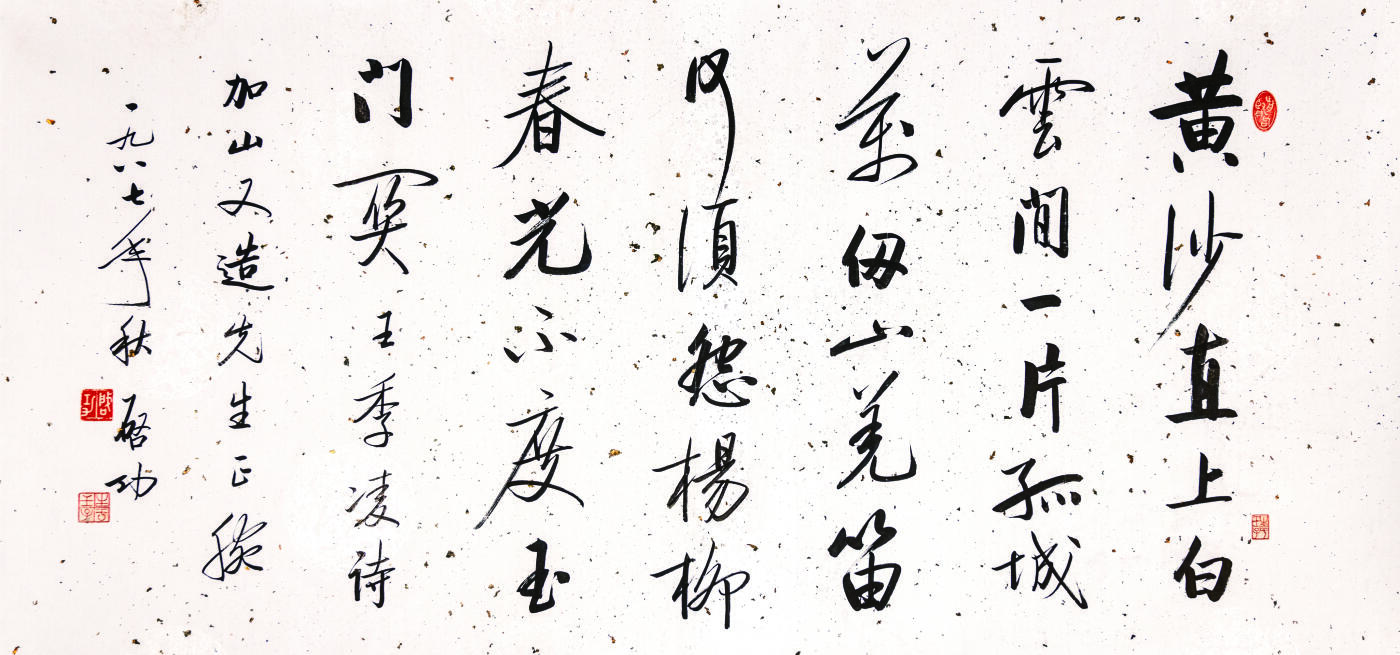 黄沙直上白
雲間一片孤城
萬仞山羌笛
何須怨楊柳
春光不度玉
門關 王季凌詩
加山又造先生正腕
一九八七年秋 啓功
啓功